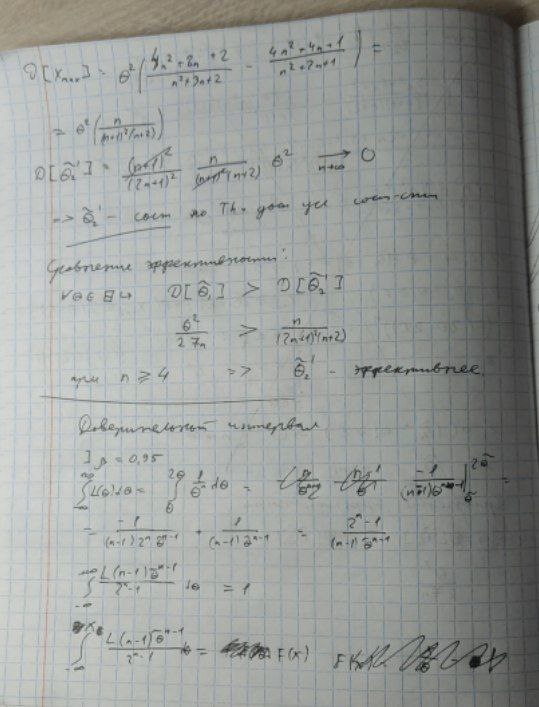 D[X_max] = θ²( (4n²+8n+2)/(n²+3n+2) − (4n²+4n+1)/(n²+2n+1) ) =
= θ²( n/((n+1)²(n+2)) )
D[θ̃₂'] = (n+1)²/(2n+1)² · n/((n+1)²(n+2)) θ² →(n→∞) 0
=> θ̃₂' – сост по Th. дост усл сост-сти
Сравнение эффективности:
∀θ∈Θ ↪ D[θ̃₁] > D[θ̃₂']
θ²/27n > n/((2n+1)²(n+2))
при n ≥ 4 => θ̃₂' – эффективнее.
Доверительный интервал
β = 0,95
∫_{-∞}^{∞} L(θ)dθ = ∫_{θ̃}^{2θ̃} 1/θⁿ dθ = −1/((n−1)θ^{n−1}) |_{θ̃}^{2θ̃} =
= −1/((n−1)2ⁿ θ̃^{n−1}) + 1/((n−1)θ̃^{n−1}) = (2ⁿ−1)/((n−1)θ̃^{n−1})
∫_{-∞}^{+∞} L(n−1)θ̃^{n−1}/(2ⁿ−1) dθ = 1
∫_{-∞}^{x} L(n−1)θ̃^{n−1}/(2ⁿ−1) dθ = F(x)